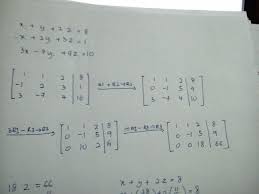 x + y + 2z = 8
-x + 2y + 3z = 1
3x - 7y + 4z = 10
[ 1 1 2 | 8 ]
[ -1 2 3 | 1 ]
[ 3 -7 4 | 10 ]
R1 + R2 → R2
[ 1 1 2 | 8 ]
[ 0 -1 5 | 9 ]
[ 3 -7 4 | 10 ]
[ 1 1 2 | 8 ]
[ 0 -1 5 | 9 ]
[ 0 10 2 |
[ 1 1 2 | 8 ]
[ 0 -1 5 | 9 ]
[ 0 0 18 | 66 ]
18 z = 66
x + y + 2z = 8